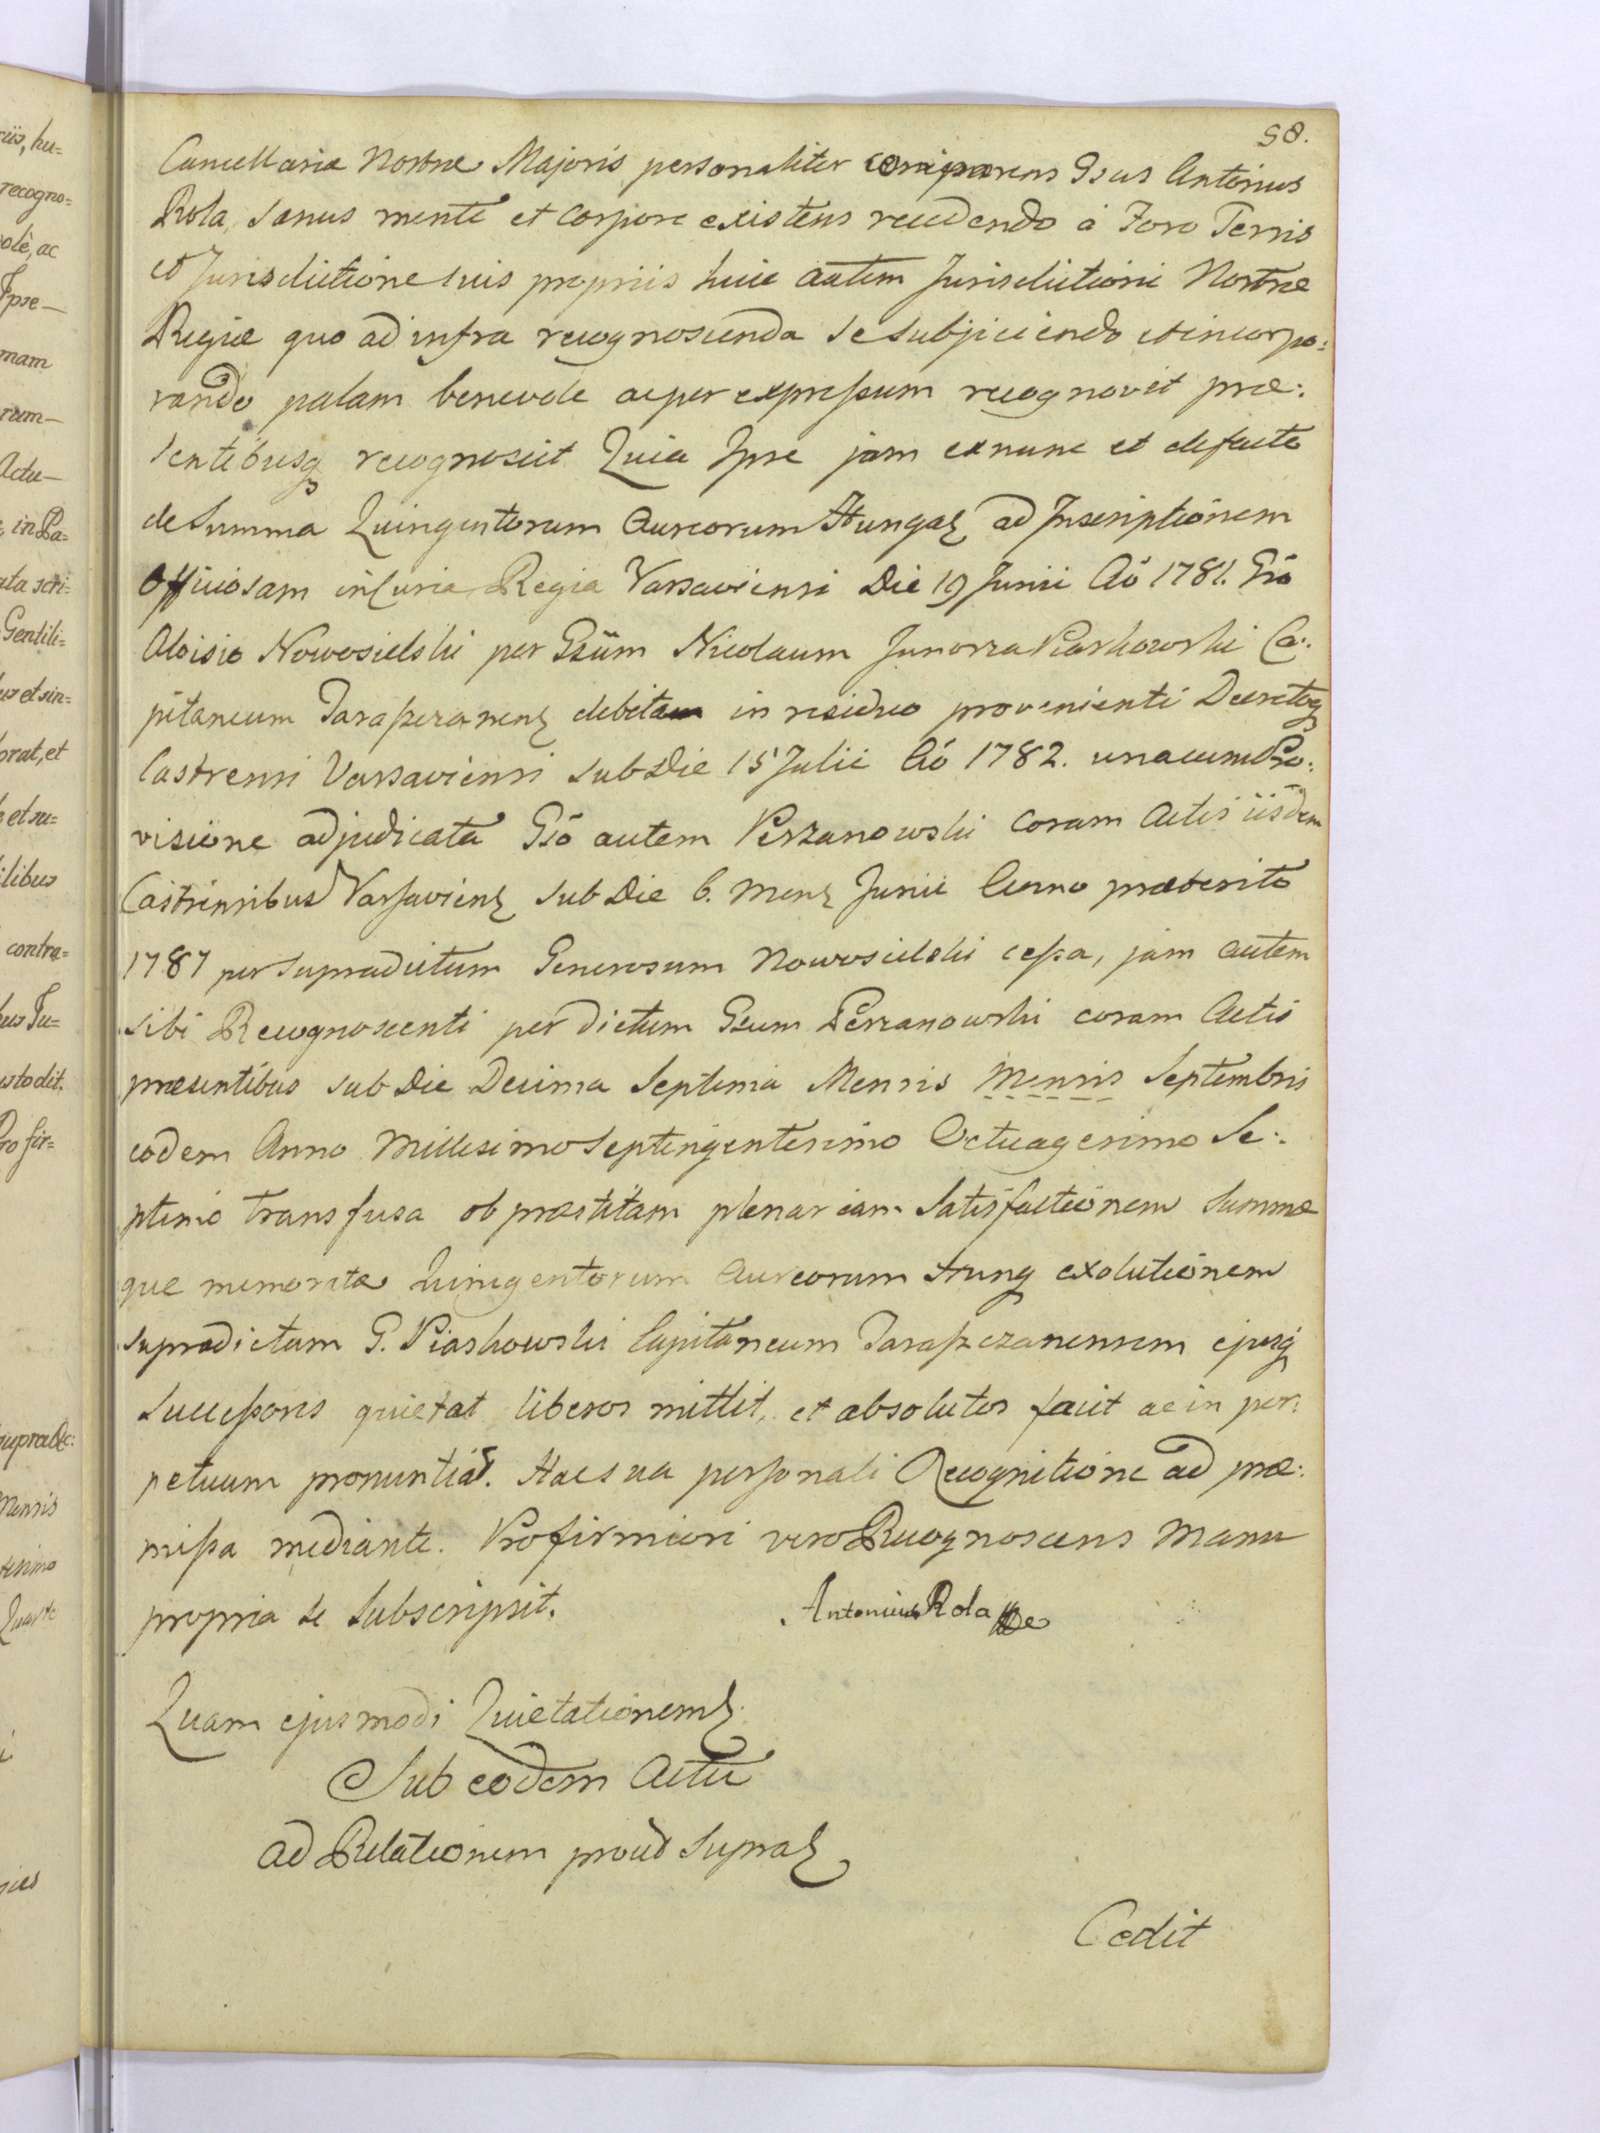 58.
Cancellariæ Nostræ Majoris personaliter comparens Gsus Antonius
Rola, Sanus mente et corpore existens recedendo à Foro Terris
et Jurisdictione suis propriis huic autem Jurisdictioni Nostræ
Regiæ quo ad infra recognoscenda se subjiciendo et incorpo:
rando palam benevole ac per expressum recognovit præ:
sentibusq recognoscit Quia Ipse jam ex nunc et de facto
de Summa Quingentorum Aureorum Hungaz ad Inscriptionem
Officiosam in Curia Regia Varsaviensi Die 19 Junii Aõ 1781. Gso
Aloisio Nowosielski per Gsum Nicolaum Junosza Piaskowski Ca:
pitaneum Taraszczanenz debita in residuo provenienti Decretoq
Castrensi Varsaviensi sub Die 15 Julii Aõ 1782. una cum Pro:
visione adjudicata Gso autem Perzanowski coram Actis iisdem
Castrensibus Varsavienz sub Die 6. Menz Junii Anno præterito
1787 per supradictum Generosum Nowosielski cessa, jam autem
sibi Recognoscenti per dictum Gsum Perzanowski coram Actis
præsentibus sub Die Decima Septima Mensis Mensis Septembris
eodem Anno Millesimo Septingentesimo Octuagesimo Se:
ptimo transfusa ob præstitam plenariam Satisfactionem summæ
que memoratæ Quingentorum Aureorum Hung exolutionem
supradictum G. Piaskowski Capitaneum Taraszczanensem ejusq
Successores quietat liberos mittit, et absolutos facit ac in per:
petuum pronuntiat. Hac sua personali Recognitione ad præ:
missa mediante. Pro firmiori vero Recognoscens Manu
propria se Subscripsit. Antonius Rola
Quam ejusmodi Quietationem
Sub eodem Actu
ad Relationem prout Supra
Cedit